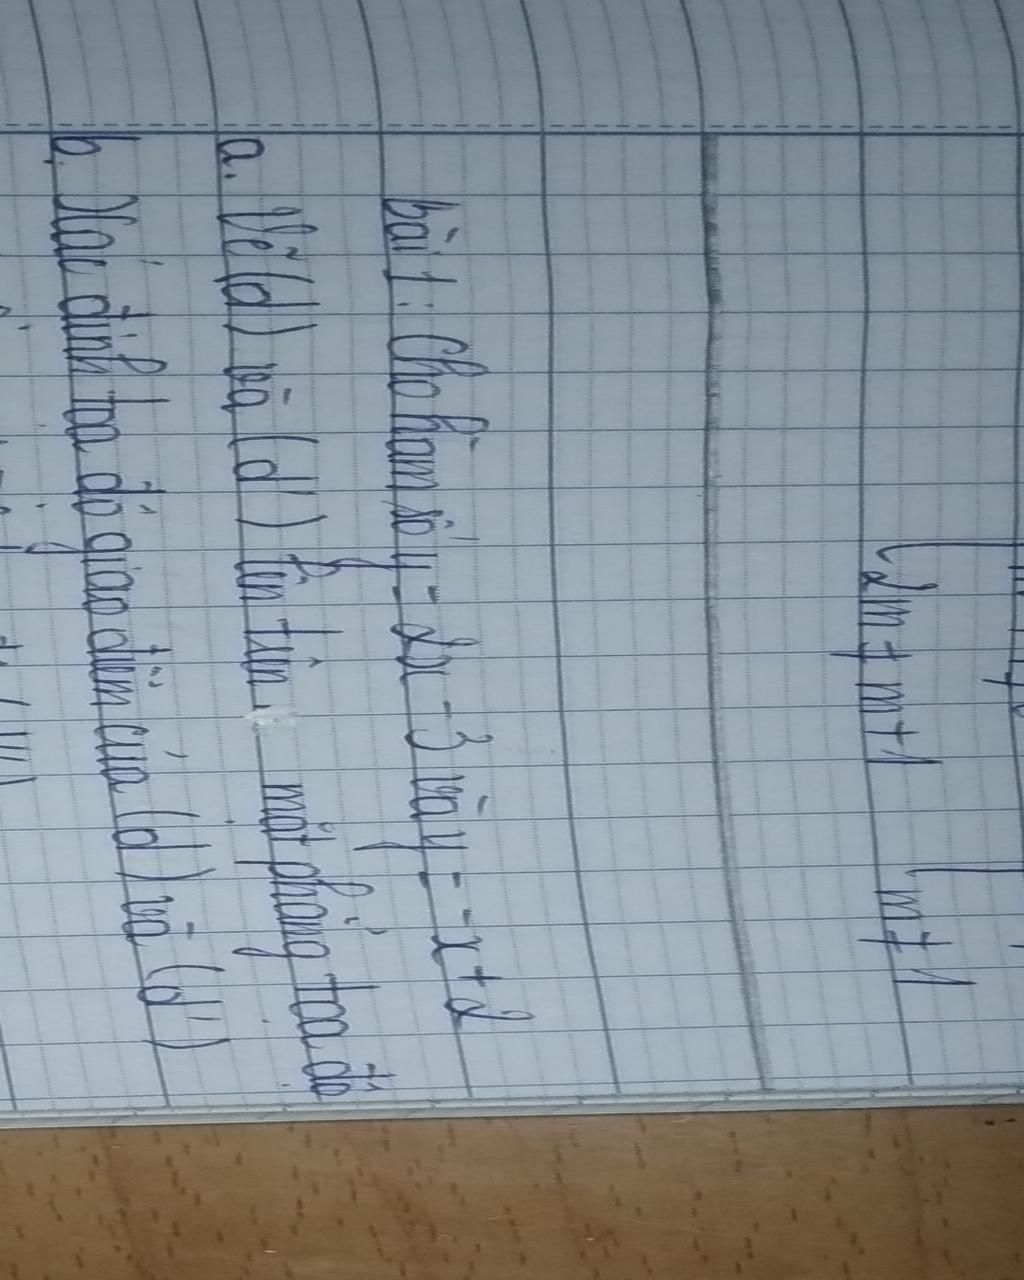 2m ≠ m+1 m ≠ 1
bài 1: Cho hàm số y = 2x - 3 và y = -x + 2
a. Vẽ (d) và (d') lên trên mặt phẳng tọa độ
b, Xác định tọa độ giao điểm của (d) và (d')